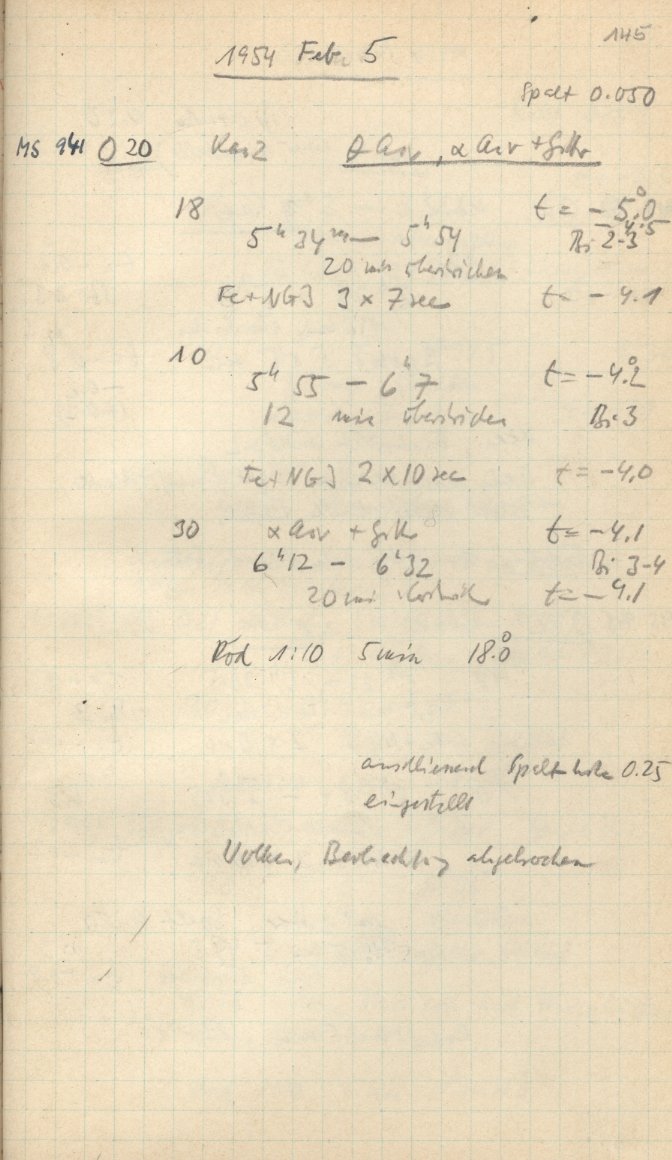 145
1954 Feb. 5
Spalt 0.050
MS 941 O 20 θ Aur, α Aur + Gitter
18 t = - 5°.0
- 4.5
5h 34m — 5h 54 Bi 2-3
20 min überstrichen
Fe+NG3 3 x 7 sec t = - 4.1
10
5h 55 — 6h 7 t = - 4°.2
12 min überstrichen Bi 3
Fe+NG3 2 x 10 sec t = - 4.0
30 α Aur + Gitter t = - 4.1
6h 12 - 6h 32 Bi 3-4
20 min t = - 4.1
Rod 1:10 5 min 18°.0
anschliessend Spalthöhe 0.25
eingestellt
Wolken, Beobachtung abgebrochen